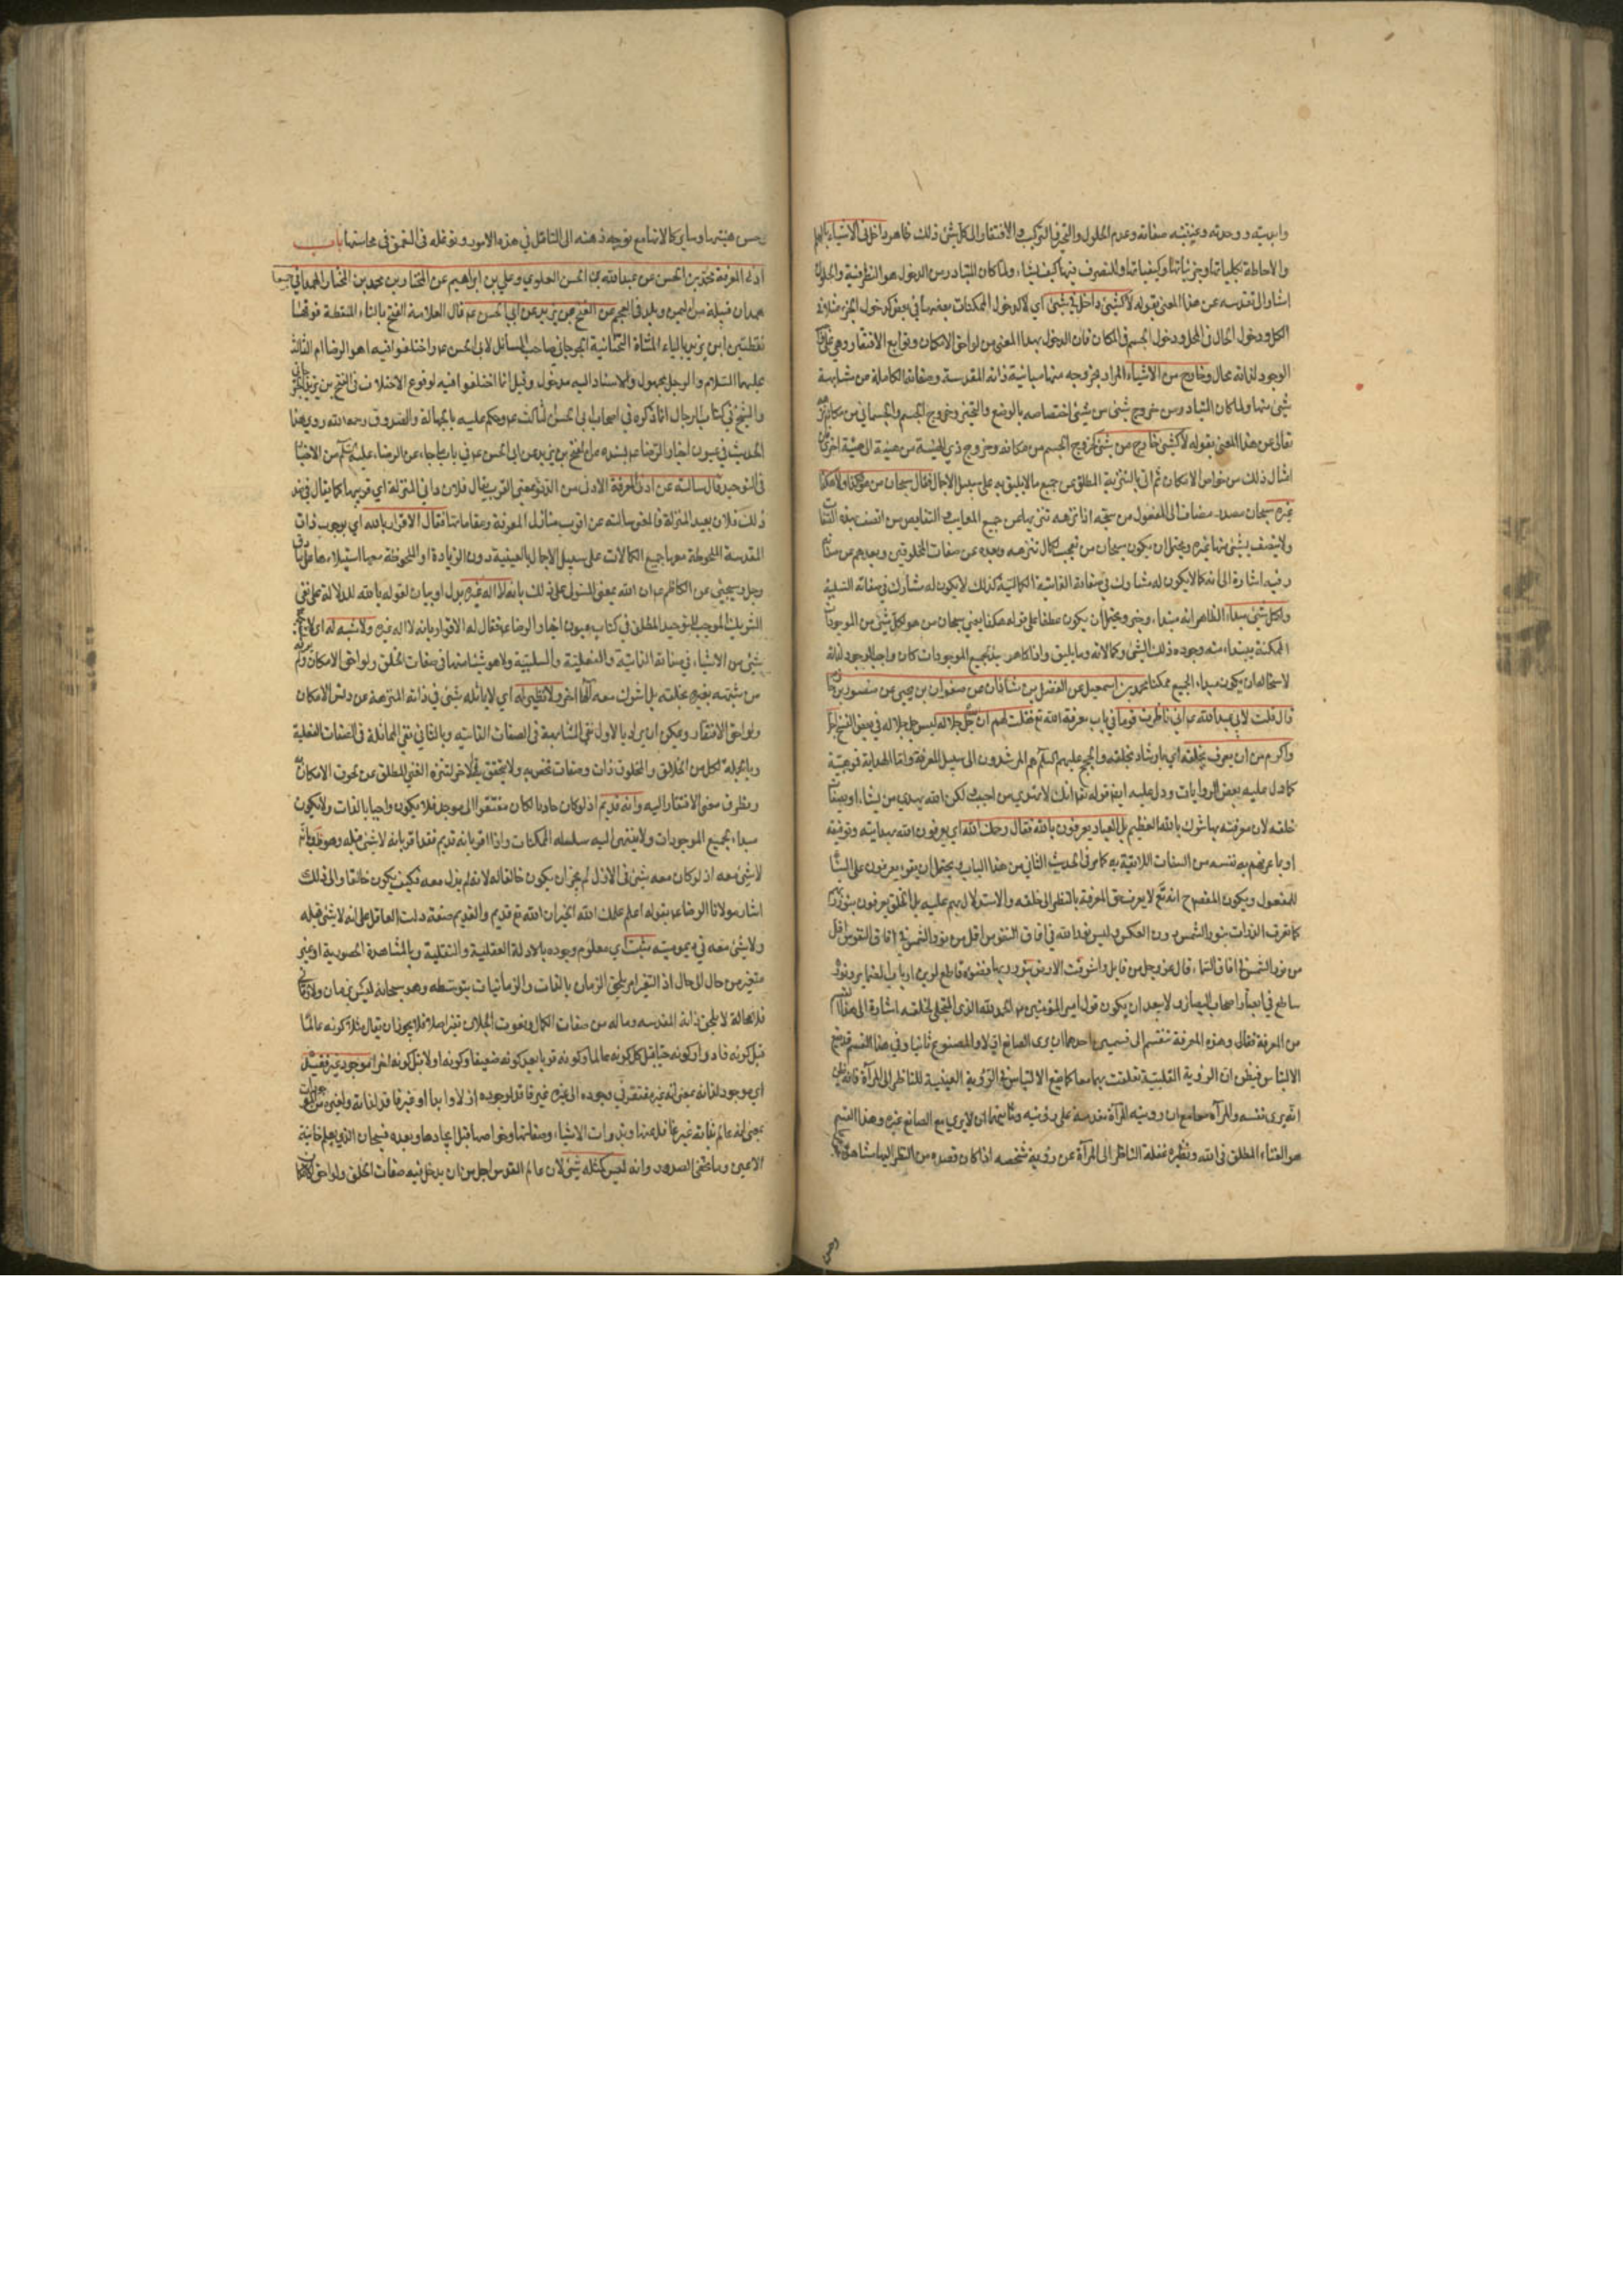 وابديته ووحدته وعينية صفاته وعدم الحلول والتحيز والتركيب والافتقار الى كل شئ ذلك ظاهر داخل فى الاشياء بالعلم
والاحاطة بكلياتها وجزئياتها وكيفياتها والتصرف فيها كيف يشاء ولما كان المتبادر من الدخول هو الظرفية والحلول
اشار الى تقدسه عن هذا المعنى بقوله لا كشئ داخل فى شئ اى لا كدخول الممكنات بعضها فى بعض كدخول الجزء مثلا فى
الكل ودخول الحال فى المحل ودخول الجسم فى المكان فان الدخول بهذا المعنى من لواحق الامكان وتوابع الافتقار وهى على
الوجود لذاته محال وخارج من الاشياء المراد بخروجه منها مباينة ذاته المقدسة وصفاته الكاملة عن مشابهة
شئ منها ولما كان المتبادر من خروج شئ من شئ اختصاصه بالوضع والتحيز وخروج الجسم والجسمانى من مكانه نزه
تعالى عن هذا المعنى بقوله لا كشئ خارج من شئ كخروج الجسم من مكانه وخروج ذى الهيئة من هيئة الى هيئة اخرى فان
امثال ذلك من خواص الامكان ثم اتى بالتنزيه المطلق عن جميع ما لا يليق به على سبيل الاجمال فقال سبحان من هو هكذا ولا هكذا
غيره سبحان مصدر مضاف الى المفعول من سبحه اذا نزهه تنزيها عن جميع المعايب والنقايص من اتصف بهذه الصفات
ولا يتصف بشئ منها غيره ويحتمل ان يكون سبحان من تعجب لكمال تنزهه وبعده عن صفات المخلوقين وبعدهم عن صفاته
وفيه اشارة الى انه كما لا يكون له مشارك فى صفاته الذاتية الكمالية كذلك لا يكون له مشارك فى صفاته السلبية
ولكل شئ مبتدأ الظاهر انه مبتدأ وخبر ويحتمل ان يكون عطفا على قوله هكذا يعنى سبحان من هو لكل شئ من الموجودات
الممكنة مبتداء منه وجوده ذلك الشئ وكمالاته وما يليق به واذا كان هو مبدأ لجميع الموجودات كان واجب الوجود لذاته
لاستحالة ان يكون مبداء الجميع ممكنا محمد بن اسمعيل عن الفضل بن شاذان عن صفوان بن يحيى عن منصور بن حازم
قال قلت لابى عبد الله ع انى ناظرت قوما فى باب معرفة الله تع فقلت لهم ان الله جل جلاله ليس جل جلاله فى بعض النسخ اجل
واكرم من ان يعرف بخلقه اى بارشاد خلقه والحجج عليهم السلام هم المرشدون الى سبيل المعرفة واما الهداية فموهبية
كما دل عليه بعض الروايات ودل عليه ايضا قوله تعالى انك لا تهدى من احببت ولكن الله يهدى من يشاء او بصفات
خلقه لان معرفته بها شرك بالله العظيم بل العباد يعرفون بالله فقال رحمك الله اى يعرفون الله بهدايته وتوفيقه
او بما عرفهم به نفسه من الصفات اللايقة به كما مر فى الحديث الثانى من هذا الباب ويحتمل ان يقرء يعرفون على البناء
للمفعول ويكون المقصود ح انه تع لا يعرف حق المعرفة بالنظر الى خلقه والاستدلال بهم عليه بل الخلق يعرفون بنور الله
كما تعرف الذرات بنور الشمس دون العكس وليس نور الله فى افاق النفوس اقل من نور الشمس فى افاق
من نور الشمس فى افاق السماء قال عز وجل من قائل واشرقت الارض بنور ربها
ساطع فى ابصار اصحاب البصاير ولا يبعد ان يكون قول امير المؤمنين ع الحمد لله الذى المتجلى لخلقه اشارة الى هذا القسم
من المعرفة فقال وهذه المعرفة تنقسم الى قسمين احدهما ان يرى الصانع اولا والمصنوع ثانيا وفى هذا القسم قد يقع
الالتباس فيظن ان الرؤية القلبية تعلقت بهما معا كما يقع الالتباس فى الرؤية العينية للناظر الى المرآة فانه يظن
انه يرى نفسه والمرآة معا مع ان رويته المرآة مقدمة على رؤيته وثانيهما ان لا يرى مع الصانع غيره وهذا القسم
هو الفناء المطلق فى الله ونظيره غفلة الناظر الى المرآة عن رؤية شخصه اذا كان قصده من النظر اليها مشاهدة
حسن هيئتها وساير كمالاتها مع توجه ذهنه الى التامل فى هذه الامور وتوغله فى التعمق فى محاسنها باب
ادنى المعرفة محمد بن الحسن عن عبد الله بن الحسن العلوى وعلى بن ابراهيم عن المختار بن محمد بن المختار الهمدانى جميعا
همدان قبيلة من اليمن وبلد فى العجم عن الفتح بن يزيد عن ابى الحسن ع قال العلامة الفتح بالتاء المنقطة فوقها
نقطتين ابن يزيد بالياء المثناة التحتانية الجرجانى صاحب المسائل لابى الحسن ع واختلفوا فيه اهو الرضا ام الثالث
عليهما السلام والرجل مجهول والاسناد اليه مدخول وقيل انما اختلفوا فيه لوقوع الاختلاف فى الفتح بن يزيد الجرجانى
والشيخ فى كتاب الرجال انما ذكره فى اصحاب ابى الحسن الثالث ع وحكم عليه بالجهالة والصدوق رحمه الله روى هذا
الحديث فى عيون اخبار الرضا ع بسنده عن الفتح بن يزيد عن ابى الحسن ع فى باب ما جاء عن الرضا عليه السلام من الاخبار
فى التوحيد قال سالته عن ادنى المعرفة الادنى من الدنو بمعنى القرب يقال فلان دانى المنزلة اى قريبها كما يقال فى ضد
ذلك فلان بعيد المنزلة فالمعنى سالته عن اقرب منازل المعرفة ومقاماتها فقال الاقرار بالله اى بوجوب ذات
المقدسة الملحوظة معها جميع الكمالات على سبيل الاجمال بالعينية دون الزيادة او الملحوظة معها استيلاءها على ما
وجل وسيجئ عن الكاظم ع ان الله بمعنى المستولى على ذلك بانه لا اله غيره بدل او بيان لقوله بالله للدلالة على نفى
الشريك الموجب للتوحيد المطلق فى كتاب عيون اخبار الرضا ع فقال له الاقرار بانه لا اله غيره ولا شبه له
شئ من الاشياء فى صفاته الذاتية والفعلية والسلبية ولا هو مشابها فى صفات الخلق ولواحق الامكان
من شبهه بغيره بخلقه بل اشرك معه الها اخر ولا نظير له اى لا يماثله شئ فى ذاته المنزهة عن دنس الامكان
ولواحق الافتقار ويمكن ان يراد بالاول نفى المشابهة فى الصفات الذاتية وبالثانى نفى المماثلة فى الصفات الفعلية
وبالجملة لكل من الخالق والمخلوق ذات وصفات تخصه ولا يتحقق فى الاخر لتنزه الغنى المطلق عن نعوت الامكان
وتطرق معنى الافتقار اليه وانه قديم اذ لو كان حادثا لكان مفتقرا الى موجد فلا يكون واجبا بالذات ولا يكون
مبداء لجميع الموجودات ولا ينتهى اليه سلسله الممكنات واذا اقر بانه قديم فقد اقر بانه لا شئ قبله وهو ظ وبانه
لا شئ معه اذ لو كان معه شئ فى الازل لم يجز ان يكون خالقا له لانه لم يزل معه فكيف يكون خالقا والى ذلك
اشار مولانا الرضا ع بقوله اعلم علمك الله الخير ان الله تع قديم والقديم صفة دلت العاقل على انه لا شئ قبله
ولا شئ معه فى ديموميته مثبت اى معلوم وجوده بالادلة العقلية والنقلية وبالمشاهدة الحضورية او غير
متغير من حال الى حال اذ التغير امر يلحق الزمان بالذات والزمانيات بتوسطه وهو سبحانه ليس بزمان ولا زمانى
فلا محالة لا يلحق ذاته المقدسه وما له من صفات الكمال ونعوت الجلال تغير اصلا فلا يجوز ان يقال مثلا كونه عالما
قبل كونه قادرا وكونه حيا قبل كونه عالما وكونه قويا بعد كونه ضعيفا وكونه اولا قبل كونه اخرا موجود غير فقيد
اى موجود لذاته بمعنى انه غير مفتقر فى وجوده الى غيره غير فاقد لوجوده ازلا وابدا او غير فاقد لذاته
بمعنى انه عالم بذاته غير غافل عنها وبذوات الاشياء وصفاتها وخواصها قبل ايجادها وبعده فسبحان الذى يعلم خائنة
الاعين وما تخفى الصدور وانه ليس كمثله شئ لان عالم القدس اجل من ان يدخل فيه صفات الخلق ولواحق